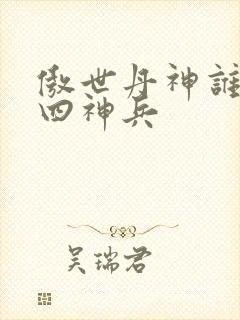 傲世丹神誰
四神兵
吴瑞君